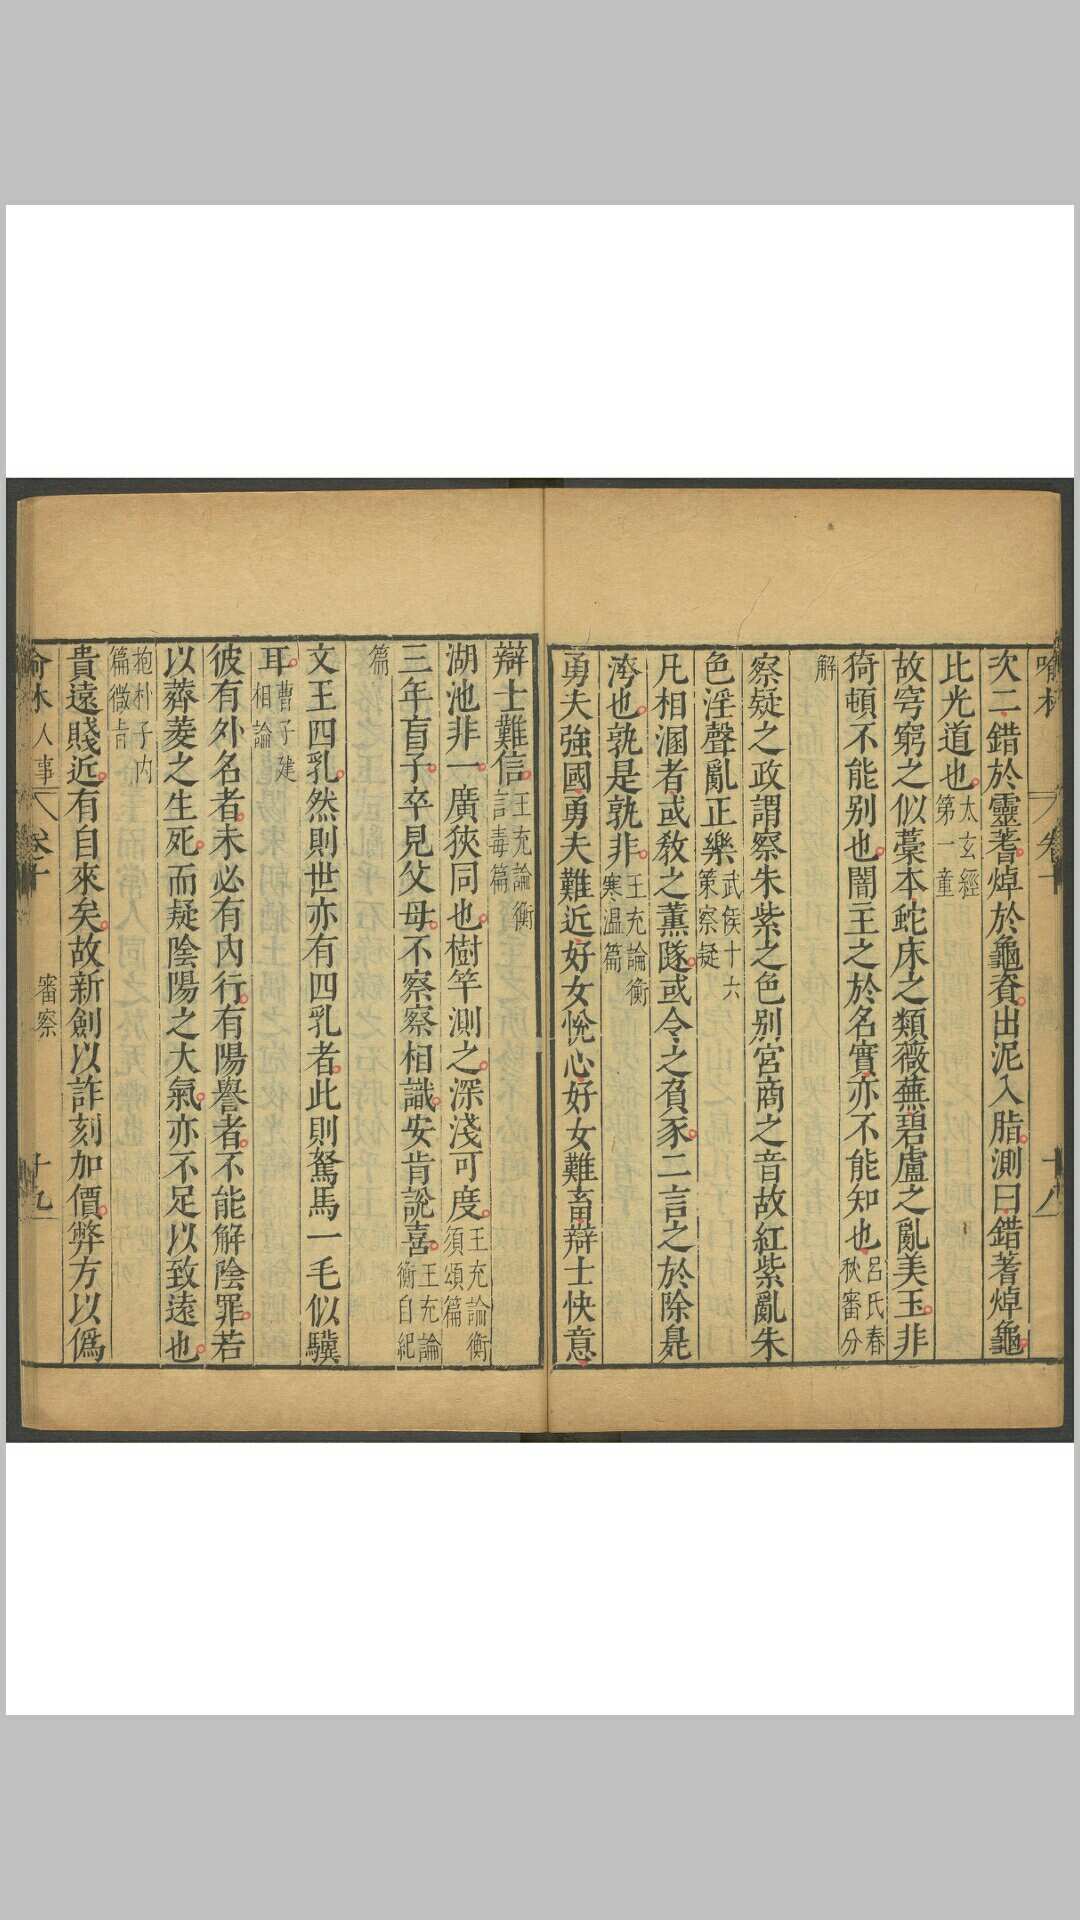 喻林
卷十
十八
次二錯於靈蓍焯於龜資出泥入脂測曰錯蓍焯龜
比光道也太玄經第一童
故穹窮之似藁本蛇床之類薇蕪碧盧之亂美玉非
猗頓不能别也闇主之於名實亦不能知也呂氏春秋審分
解
察疑之政謂察朱紫之色别宮商之音故紅紫亂朱
色淫聲亂正樂武侯十六策察疑
凡相溷者或教之薰隧或令之負豕二言之於除㫼
洿也孰是孰非王充論衡寒温篇
勇夫強國勇夫難近好女悅心好女難畜辯士快意
辯士難信王充論衡言毒篇
湖池非一廣狹同也樹竿測之深淺可度王充論衡須頌篇
三年盲子卒見父母不察察相識安肯說喜王充論衡自紀
篇
文王四乳然則世亦有四乳者此則駑馬一毛似驥
耳曹子建相論
彼有外名者未必有内行有陽譽者不能解陰罪若
以薺菱之生死而疑陰陽之大氣亦不足以致遠也
抱朴子内篇微旨
貴遠賤近有自來矣故新劍以詐刻加價弊方以僞
俞林
人事
卷十
審察
十九